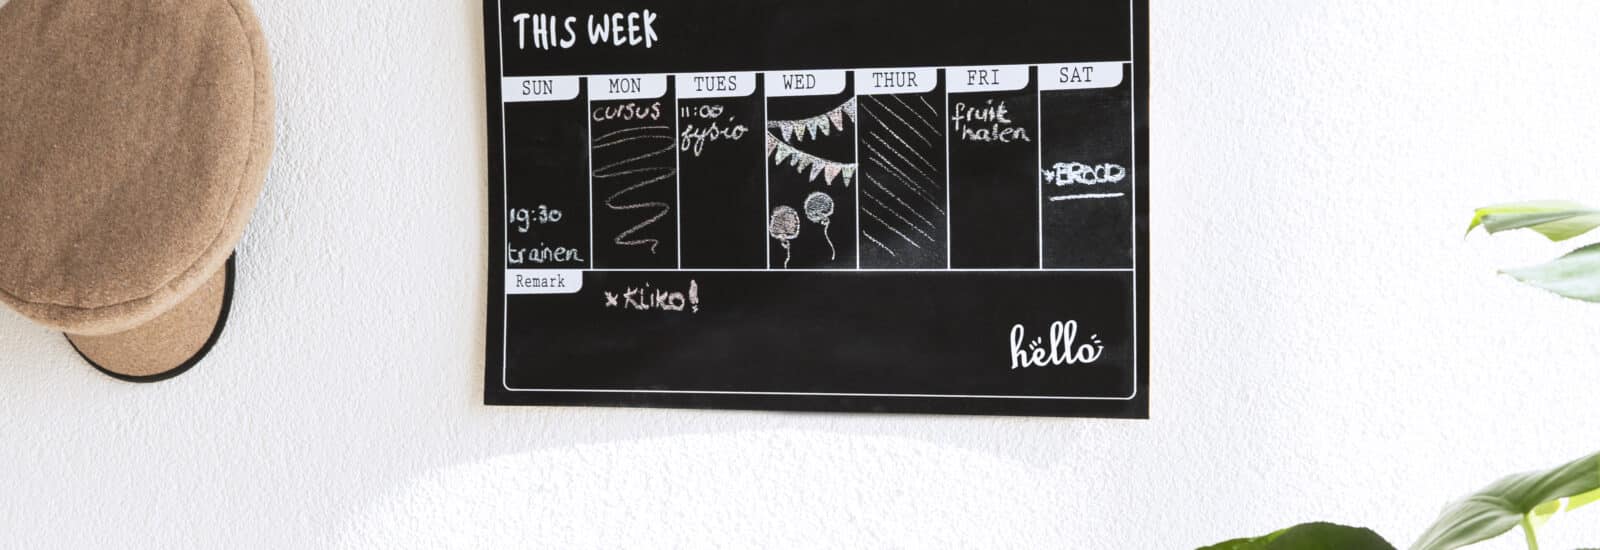 THIS WEEK
SUN MON TUES WED THUR FRI SAT
cursus
11:00
fysio
fruit
halen
*BROOD
19:30
trainen
Remark
*Kliko!
hello